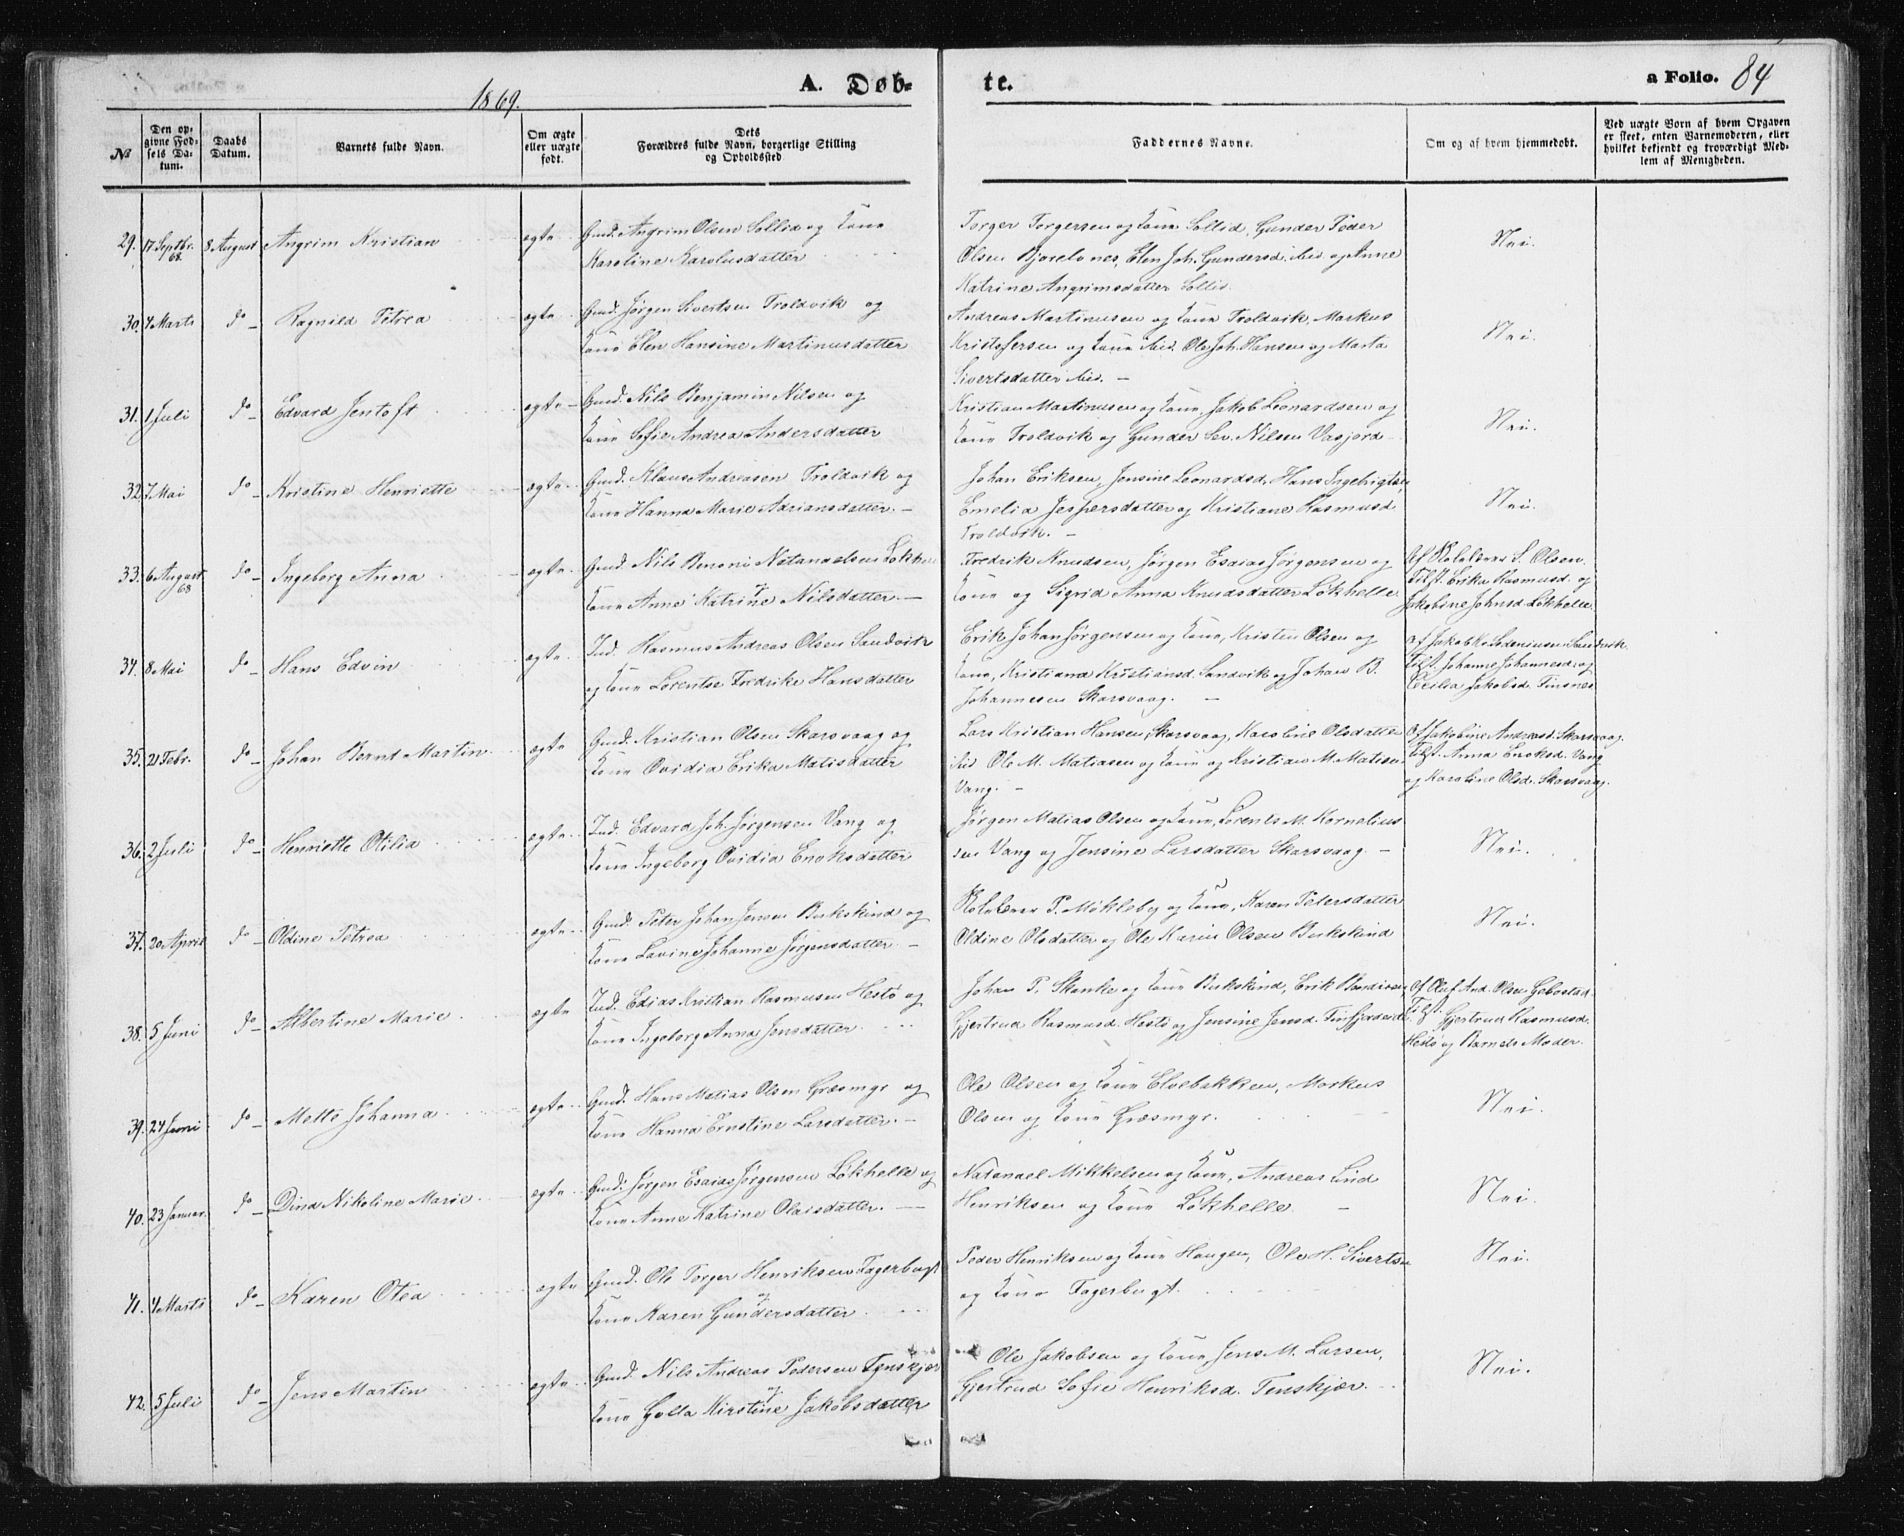 1869.
A. Døb-
te.
a Folio. 84
№
Den op-
givne Fød-
sels Da-
tum.
Daabs
Datum.
Barnets fulde Navn.
Om ægte
eller uægte
født.
Dets
Forældres fulde Navn, borgerlige Stilling
og Opholdssted.
Faddernes Navne.
Om og af hvem hjemmedøbt.
Ved uægte Børn af hvem Opgaven
er skeet, enten Barnemoderen, eller
hvilket bekjendt og troværdigt Med-
lem af Menigheden.
29. 17 Septbr. 68 8 August Angrim Kristian ægte
Gmd. Angrim Olsen Sollid og Kone
Karoline Karolusdatter
Torger Torgersen og Kone Sollid, Gunder Peder
Olsen Bjorelvnes, Elen Joh. Gundersd. ibid og Anne
Katrine Angrimsdatter Sollid.
Nei.
30. 4 Marts do Ragnild Petrea ægte
Gmd. Jørgen Sivertsen Troldvik og
Kone Elen Hansine Martinusdatter
Andreas Martinusen og Kone Troldvik, Markus
Kristofersen og Kone ibid. Ole Joh. Hansen og Marta
Sivertsdatter ibid. —
Nei.
31. 1 Juli do Edvard Jentoft ægte
Gmd. Nils Benjamin Nilsen og
Kone Sofie Andrea Andersdatter
Kristian Martinusen og Kone, Jakob Leonardsen og
Kone Troldvik og Gunder Sev. Nilsen Vasjord
Nei.
32. 7 Mai do Kristine Henriette ægte
Gmd. Klaus Andreasen Troldvik og
Kone Hanna Marie Adriansdatter. —
Johan Eriksen, Jensine Leonardsd., Hans Ingebrigtsen,
Emelia Jespersdatter og Kristiane Rasmusd.
Troldvik. —
Nei.
33. 6 August 68 do Ingeborg Anna ægte
Gmd. Nils Benoni Natanaelsen Løkhelle
og
Kone Anne Katrine Nilsdatter. —
Fredrik Knudsen, Jørgen Esaias Jørgensen og
Kone og Sigrid Anna Knudsdatter Løkhelle
Af Skolelærer S. Olsen.
Tilst. Erika Rasmusd. og
Jakobine Johnsd. Løkhelle.
34. 8 Mai do Hans Edvin ægte
Ind. Rasmus Andreas Olsen Sandvik
og Kone Lorentse Fredrike Hansdatter
Erik Johan Jørgensen og Kone, Kristen Olsen og
Kone, Kristiana Kristiansd. Sandvik og Johan B.
Johannesen Skarsvaag. —
Tilst. Johanne Johannesd. og
Cecilia Jakobsd. Finsnes
35. 21 Febr. do Johan Bernt Martin ægte
Gmd. Kristian Olsen Skarsvaag og
Kone Ovidia Erika Matisdatter
Lars Kristian Hansen, Skarsvaag, Karoline Olsdatter
ibid Ole M. Matiasen og Kone og Kristian M. Matisen
Vang. —
Af Jakobine Andreasd. Skarsvaag.
Tilst. Anna Enoksd. Vang
og Karoline Olsd. Skarsvaag.
36. 2 Juli do Henriette Otilia ægte
Ind. Edvard Joh. Jørgensen Vang og
Kone Ingeborg Ovidia Enoksdatter
Jørgen Matias Olsen og Kone, Lorents M. Kornelius
sen Vang og Jensine Larsdatter Skarsvaag. —
Nei.
37. 20 April do Oldine Petrea ægte
Gmd. Peter Johan Jensen Bukskind og
Kone Lavine Johanne Jørgensdatter —
Skolelærer P. Møkleby og Kone, Karen Petersdatter
Oldine Olsdatter og Ole Karius Olsen Bukskind
Nei.
38. 5 Juni do Albertine Marie ægte
Ind. Edias Kristian Rasmusen Hestø og
Kone Ingeborg Anna Jensdatter
Johan P. Skanke og Kone Bukskind, Erik
Gjertrud Rasmusd. Hestø og Jensine Jensd.
Af Oluf And. Olsen Gebostad
Tilst. Gjertrud Rasmusd.
Hestø og Barnets Moder.
39. 24 Juni do Mette Johanna ægte
Gmd. Hans Matias Olsen Græsmyr og
Kone Hanna Ernstine Larsdatter. —
Ole Olsen og Kone Elvebakken, Markus
Olsen og Kone Græsmyr.
Nei.
40. 23 Januar. do Dina Nikoline Marie ægte
Gmd. Jørgen Esaias Jørgensen Løkhelle og
Kone Anne Katrine Olaisdatter. —
Natanael Mikkelsen og Kone, Andreas Lind
Henriksen og Kone Løkhelle. —
Nei.
41. 4 Marts do Karen Otea ægte
Gmd. Ole Torger Henriksen Fagerbugt
og
Kone Karen Gundersdatter
Peder Henriksen og Kone Haugen, Ole H. Sivertsen
og Kone Fagerbugt.
Nei.
42. 5 Juli do Jens Martin ægte
Gmd. Nils Andreas Pedersen Tenskjær
og
Kone Golla Kirstine Jakobsdatter
Ole Jakobsen og Kone, Jens M. Larsen,
Gjertrud Sofie Henriksd. Tenskjær.
Nei.